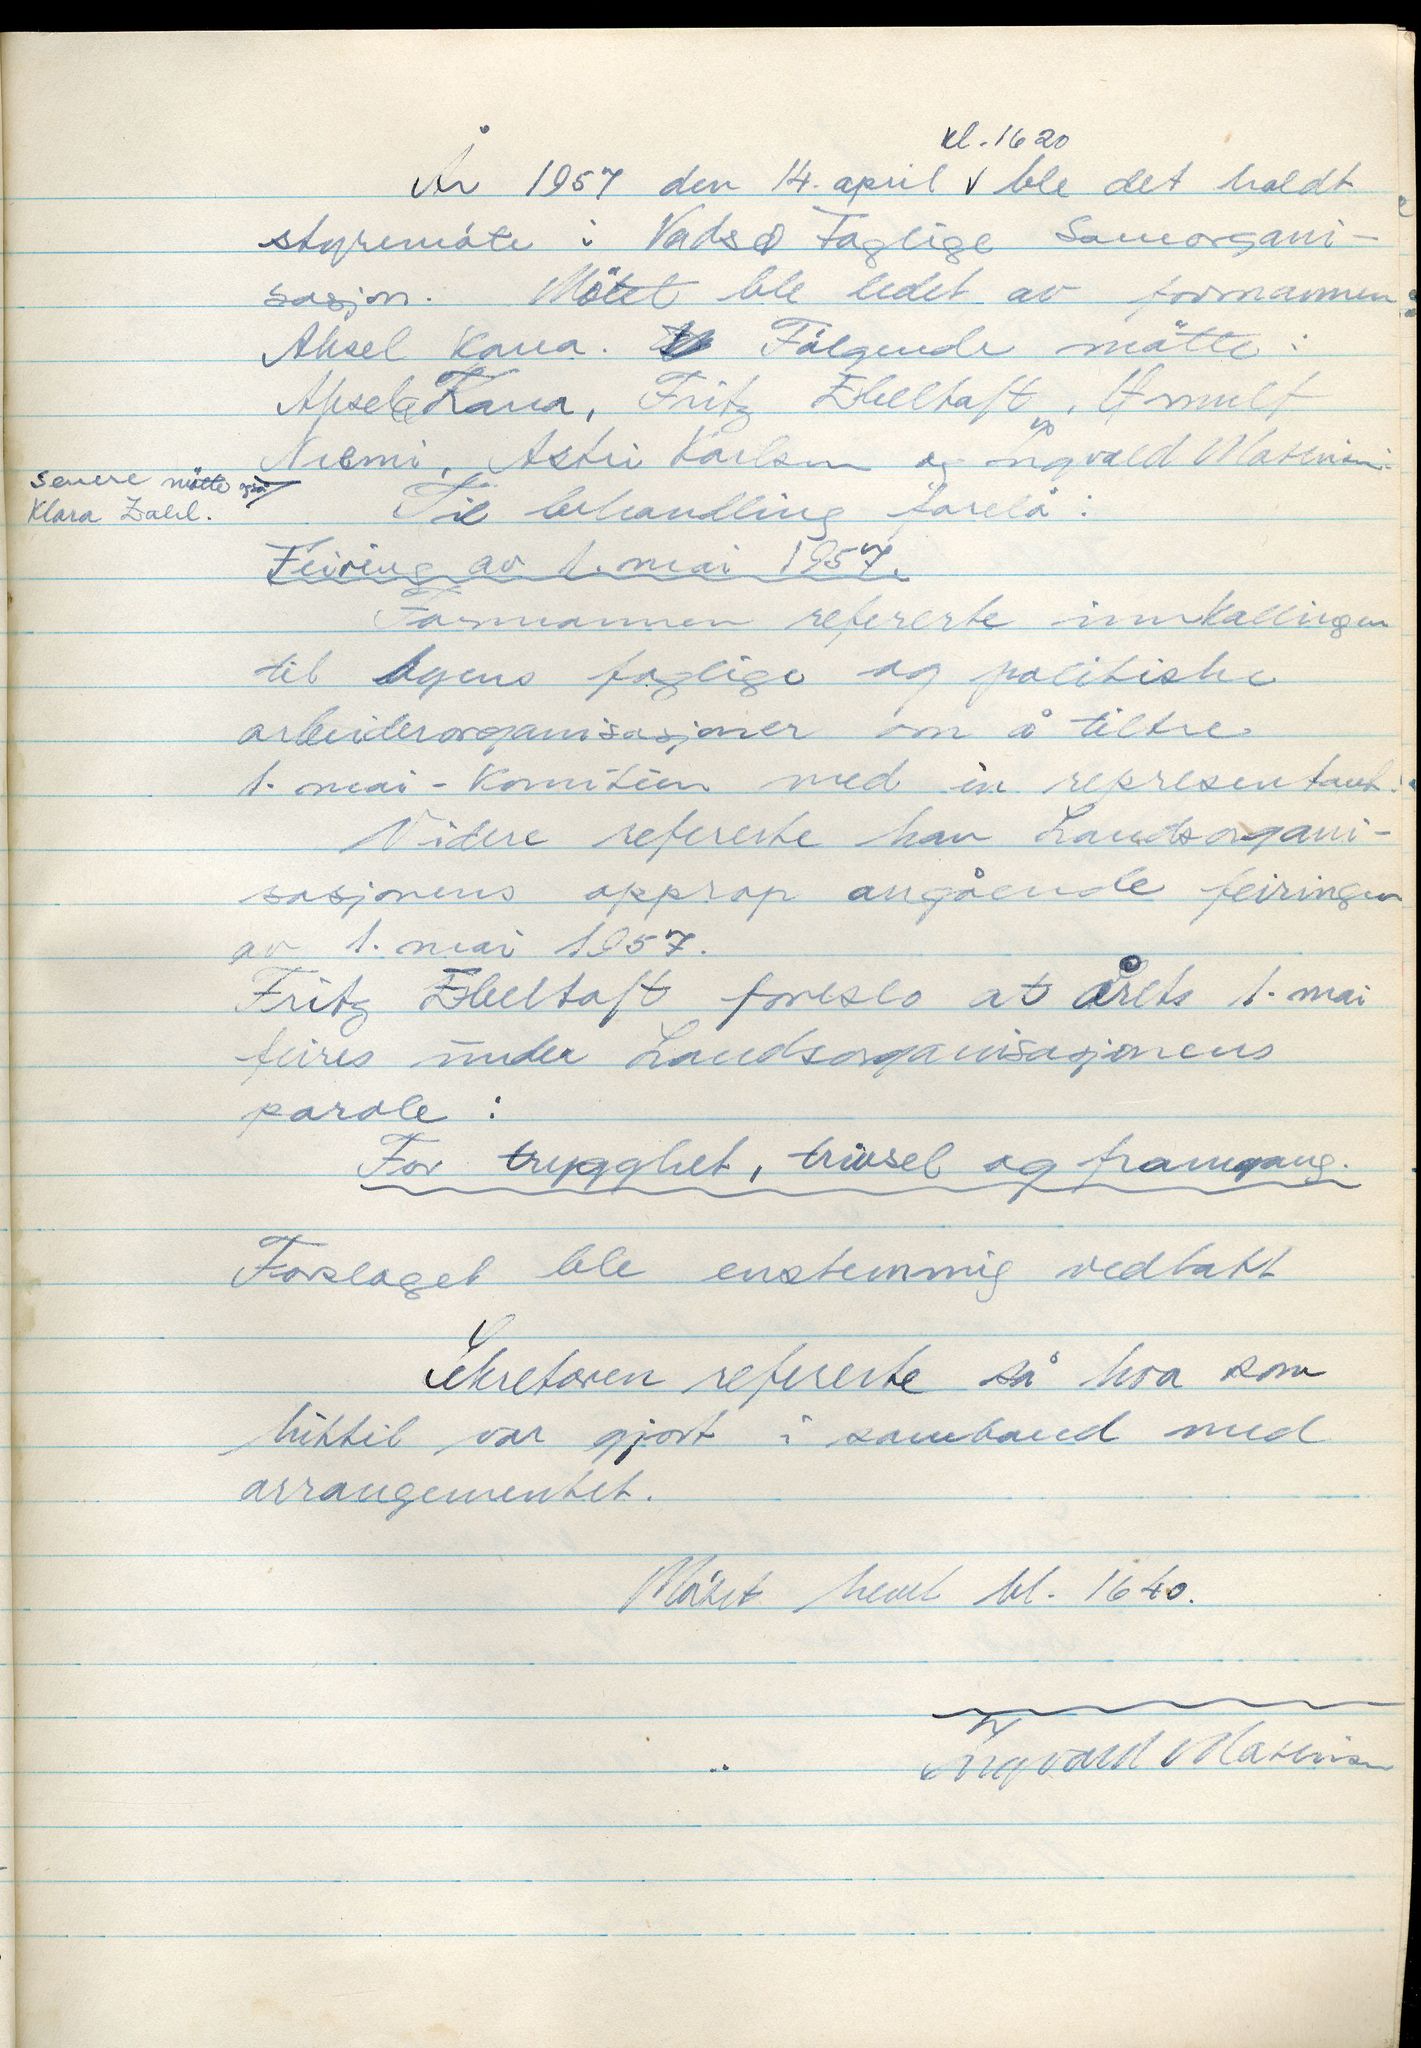 kl. 1620
År 1957 den 14. april v ble det holdt
styremöte i Vadsø Faglige Samorgani-
sasjon. Mötet ble ledet av formannen
Aksel Kana. Fölgende mötte:
Aksel Kana, Fritz Ebeltoft,
Niemi, Astri Karlsen og Ingvald Mathisen.
Senere mötte også
Klara Dahl.
Til behandling forelå:
Feiring av 1. mai 1957.
Formannen refererte innkallingen
til byens faglige og politiske
arbeiderorganisasjoner om å tiltre
1. mai-komitéen med én representant.
Videre refererte han Landsorgani-
sasjonens opprop angående feiringen
av 1. mai 1957.
Fritz Ebeltoft foreslo at årets 1. mai
feires under Landsorganisasjonens
parole:
For trygghet, trivsel og framgang.
Forslaget ble enstemmig vedtatt
Sekretæren refererte så hva som
hittil var gjort i samband med
arrangementet.
Mötet hevet kl. 1640.
Ingvald Mathisen